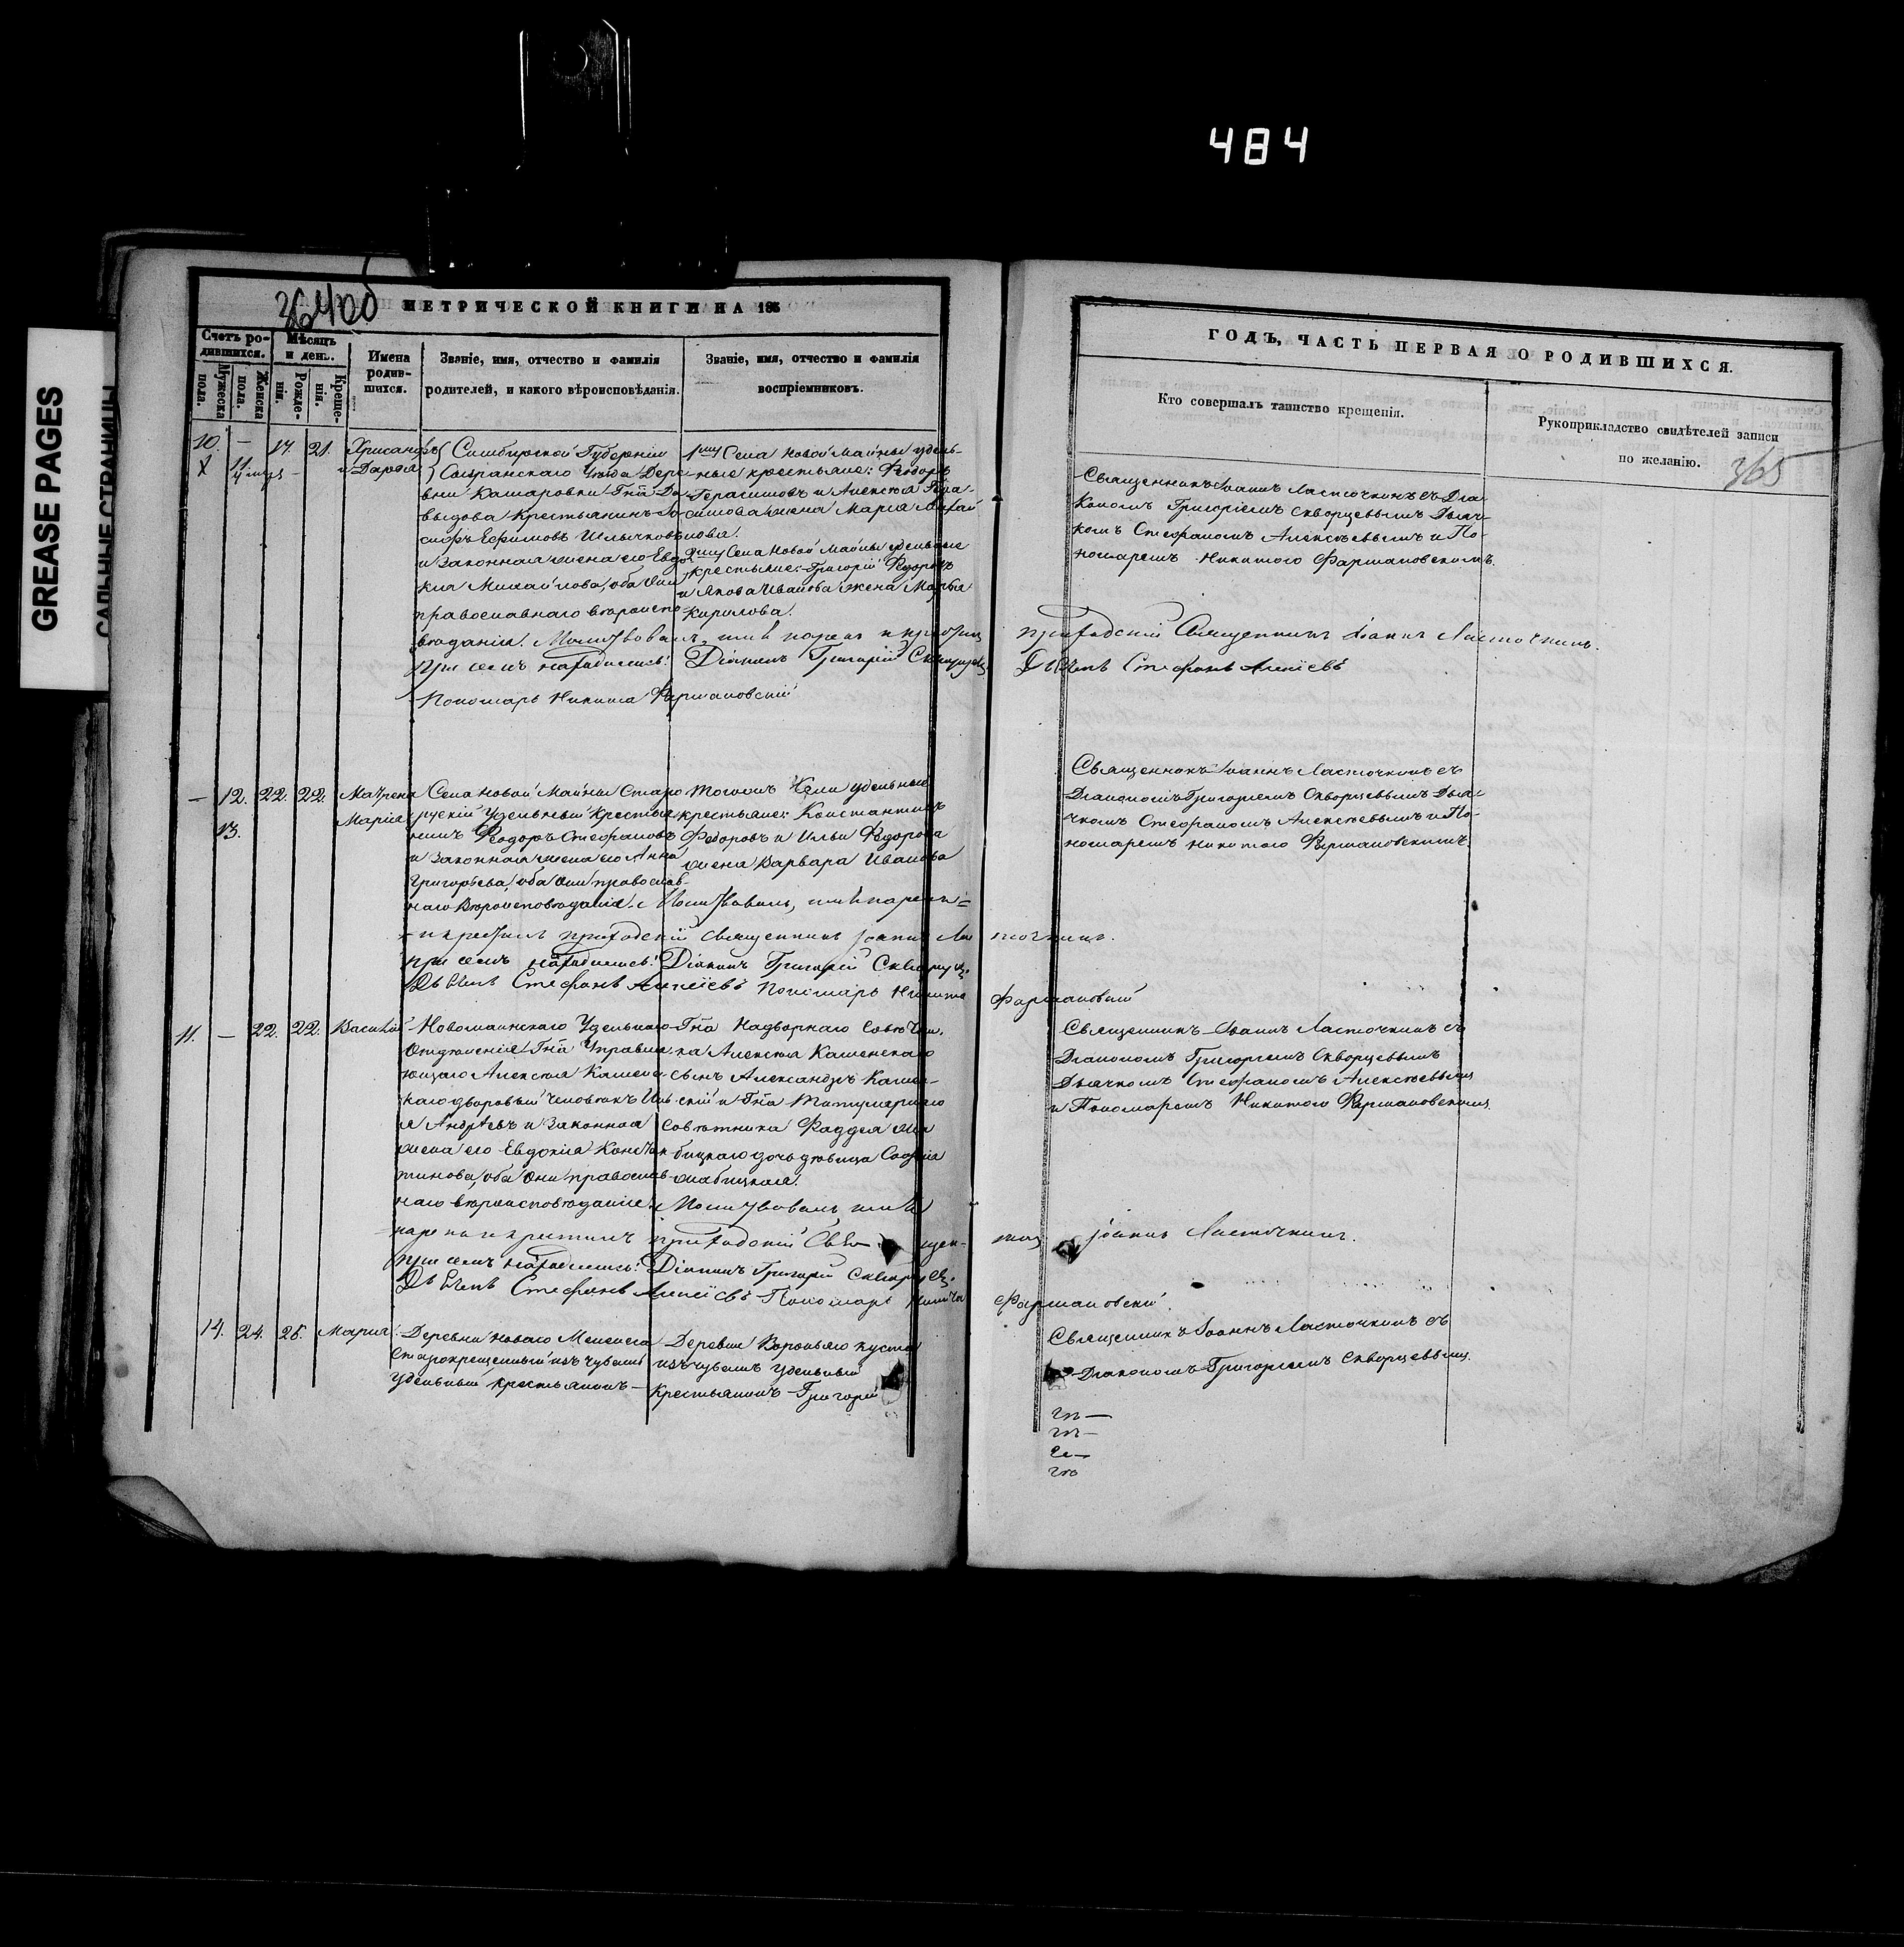 484
GREASE PAGES
САЛЬНЫЕ СТРАНИЦЫ
364 об
МЕТРИЧЕСКОЙ КНИГИ НА 185
Счетъ ро-
дившихся.
Мужеска
пола.
Женска
пола.
Мѣсяцъ
и день.
Рожде-
нія.
Креще-
нія.
Имена
родив-
шихся.
Званіе, имя, отчество и фамилія
родителей, и какого вѣроисповѣданія.
Званіе, имя, отчество и фамилія
воспріемниковъ.
10. — 17. 21. Хрисанфъ
11 и Дарья
Симбирской Губерніи
Сызранскаго Уѣзда Дере-
вни Камаровки Гна Да-
выдова крестьянинъ Іо-
сифъ Ефимовъ
и законная жена его Евдо-
кія Михайлова, оба они
православнаго вѣроиспо-
вѣданія. Молитвовалъ, имя нарекъ и крестилъ
при семъ находились: Діаконъ Григорій Скворцевъ
Пономарь Никита Фармаковскій
1му Села Новой Майны удѣль-
ные крестьяне: Ѳедоръ
Герасимовъ и Алексѣя Гера-
симова жена Марья Михай
лова.
2му Села Новой Майны удѣльные
крестьяне: Григорій Ѳедоровъ
и Якова Иванова жена Марья
Кирилова.
— 12. 22. 22. Матрена
13. Марія
Села Новой Майны Старо
рускій Удѣльный Крестья-
нинъ Ѳеодоръ Стефановъ
и законная жена его Анна
Григорьева, оба они православ-
наго Вѣроисповѣданія. Молитвовалъ, имя нарекъ
и крестилъ приходскій Священникъ Іоаннъ Лас
при семъ находились: Діаконъ Григорій Скворцевъ
Дьячекъ Стефанъ Алексіевъ Пономарь Никита
тогожъ Села удѣльные
крестьяне: Константинъ
Ѳедоровъ и Ильи Ѳедорова
жена Варвара Иванова
11. — 22. 22. Василій
Новомаинскаго Удѣльнаго
Отдѣленія Гна Управля-
ющаго Алексѣя Каменс
каго дворовый человѣкъ Иль
я Андреевъ и законная
жена его Евдокія Констан
тинова, оба они православ
наго вѣроисповѣданія. Молитвовалъ имя
нарекъ и крестилъ приходскій Священ-
при семъ находились: Діаконъ Григорій Скворцев.
Дьячекъ Стефанъ Алексіевъ Пономарь Никита
Гна Надворнаго Совѣтни
ка Алексѣя Каменскаго
сынъ Александръ Камен-
скій и Гна Титулярнаго
Совѣтника Фаддея
бицкаго дочь дѣвица Софія
14. 24. 25. Марія
Деревни Новаго
Старокрещенный изъ чувашъ
Удѣльный крестьянинъ—
Деревни Вороньяго куста
изъ чувашъ Удѣльный
крестьянинъ Григорій
ГОДЪ, ЧАСТЬ ПЕРВАЯ О РОДИВШИХСЯ.
Кто совершалъ таинство крещенія.
Рукоприкладство свидѣтелей записи
по желанію.
365
Священникъ Іоаннъ Ласточкинъ съ Діа-
кономъ Григоріемъ Скворцевымъ Дьяч-
комъ Стефаномъ Алексѣевымъ и По-
номаремъ Никитою Фармаковскимъ.
приходскій Священникъ Іоаннъ Ласточкинъ.
Дьячекъ Стефанъ Алексіевъ
Священникъ Іоаннъ Ласточкинъ съ
Діакономъ Григоріемъ Скворцевымъ Дья-
чкомъ Стефаномъ Алексѣевымъ и По-
номаремъ Никитою Фармаковскимъ.
точкинъ.
Фармаковскій
Священникъ Іоаннъ Ласточкинъ съ
Діакономъ Григоріемъ Скворцевымъ
Дьячкомъ Стефаномъ Алексѣевымъ
и Пономаремъ Никитою Фармаковскимъ.
никъ Іоаннъ Ласточкинъ.
Фармаковскій.
Священникъ Іоаннъ Ласточкинъ съ
Діакономъ Григоріемъ Скворцевымъ